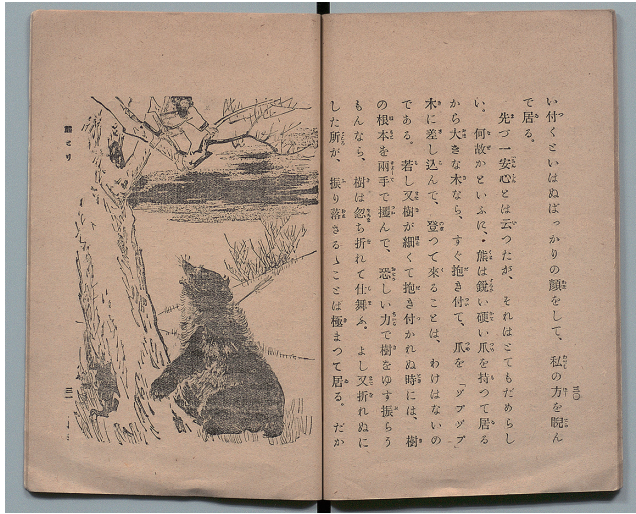 い付くといはぬばつかりの顔をして、私の方を睨ん
で居る。
先づ一安心とは云つたが、それはとてもだめらし
い。何故かといふに、熊は鋭い硬い爪を持つて居る
から大きな木なら、すぐ抱き付て、爪を「ヅブヅブ」
木に差し込んで、登つて來ることは、わけはないの
である。若し又樹が細くて抱き付かれぬ時には、樹
の根本を兩手で攫んで、恐しい力で樹をゆす振らう
もんなら、樹は忽ち折れて仕舞ふ。よし又折れぬに
した所が、振り落さるゝことは極まつて居る。だか
三〇
三一